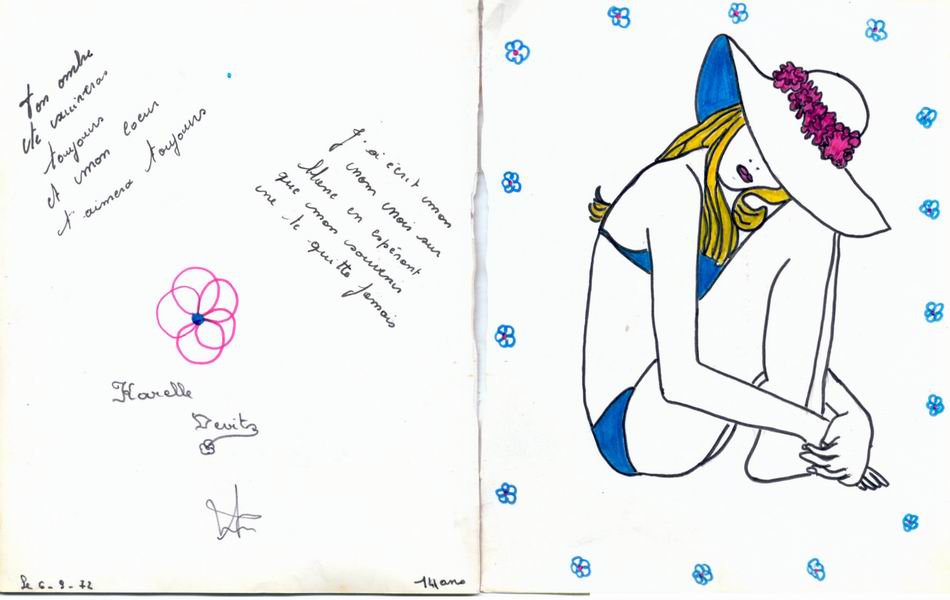 Ton ombre
te suivras
toujours
et mon coeur
t'aimera toujours
J'ai écrit mon
nom mais sur
blanc en espérant
que mon souvenir
ne te quitte jamais
Karelle
Devitz
Le 6-9-72
14 ans